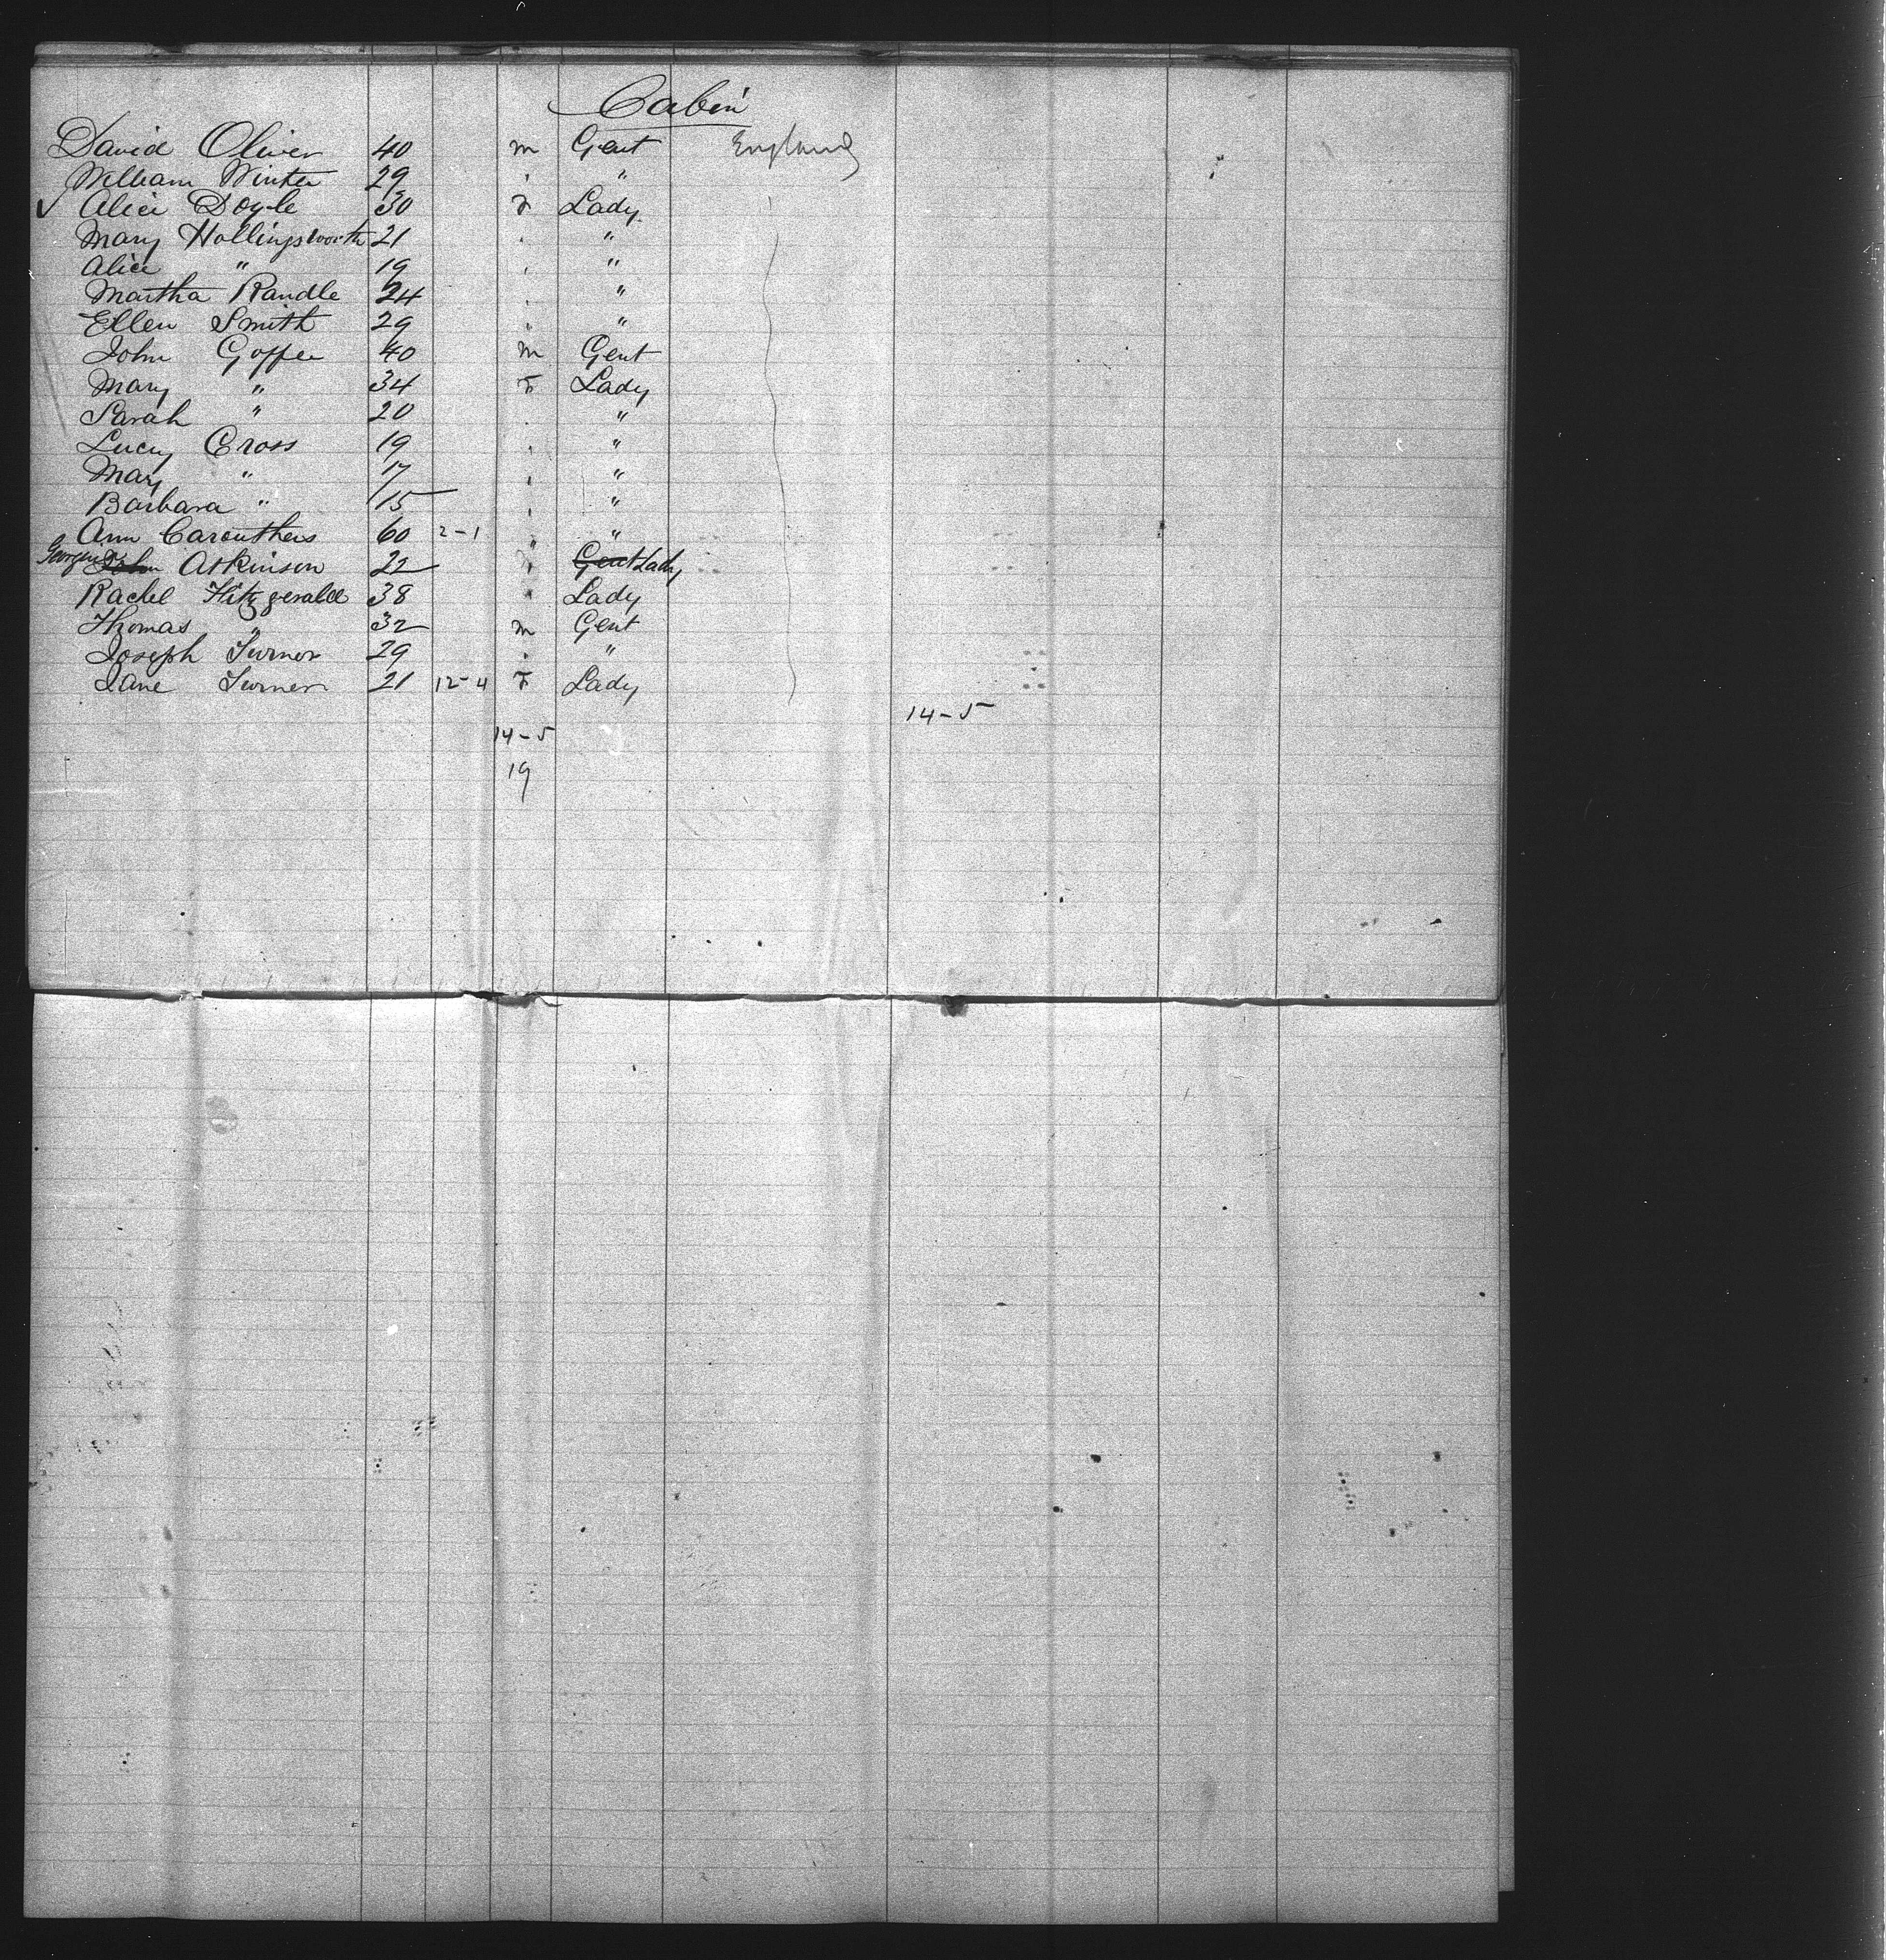 Cabin
David Oliver 40 m Gent England
William Winter 29 " "
✓ Alice Doyle 30 F Lady
Mary Hollingsworth 21 " "
Alice " 19 " "
Martha Randle 24 " "
Ellen Smith 29 " "
John Goffee 40 m Gent
Mary " 34 F Lady
Sarah " 20 " "
Lucy Cross 19 " "
Mary " 17 " "
Barbara " 15 " "
Ann Carouthers 60 2-1 " "
Georgina John Atkinson 22 " Gent Lady
Rachel Fitzgerald 38 " Lady
Thomas " 32 m Gent
Joseph Turner 29 " "
Jane Turner 21 12-4 F Lady
14-5
14-5
19